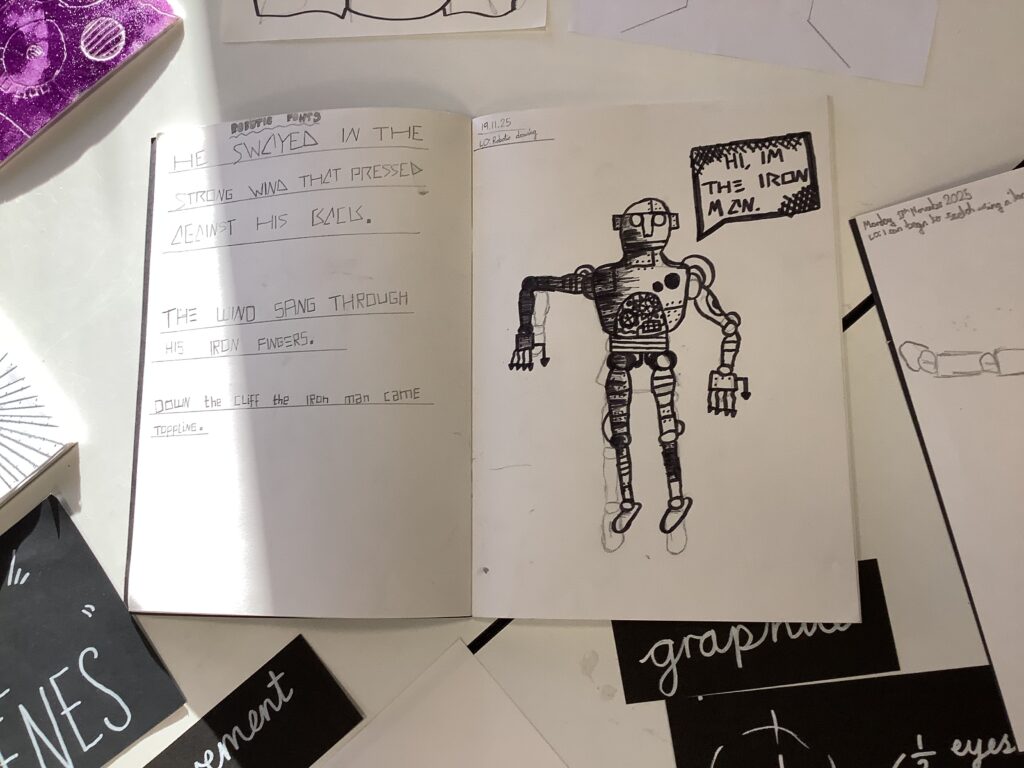 ROBOTIC FONTS
HE SWAYED IN THE
STRONG WIND THAT PRESSED
AGAINST HIS BACK.
THE WIND SANG THROUGH
HIS IRON FINGERS.
DOWN the CLIFF the IRON man came
TOPPLINE.
19.11.25
LO: Robotic drawing
HI, IM
THE IRON
MAN.
2025
LO: I can begin to sketch using a
ENES
ement
graphic
1/2 eyes